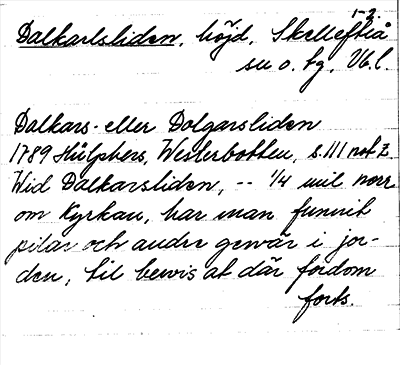 1-2.
Dalkarlsliden, höjd, Skellefteå
sn o. tg, Vb. l.
Dalkars- eller Dolgarsliden
1789 Hülphers, Westerbotten, s. 111 not z.
Wid Dalkarsliden, -- 1/4 mil norr
om Kyrkan, har man funnit
pilar och andre gewär i jor-
den, til bewis at där fordom
forts.